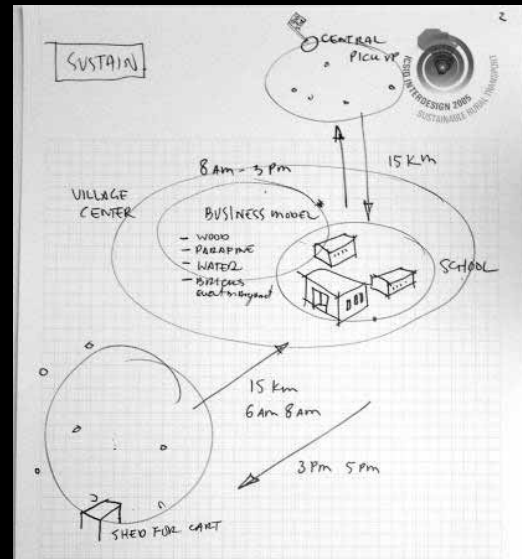 2
SUSTAIN
CENTRAL
PICK UP
ICSID INTERDESIGN 2005
SUSTAINABLE RURAL TRANSPORT
8 AM - 3 PM
15 KM
VILLAGE
CENTER
BUSINESS MODEL
- WOOD
- PARAFINE
- WATER
- BRICKS
SCHOOL
15 KM
6 AM 8 AM
3 PM 5 PM
SHED FOR CART